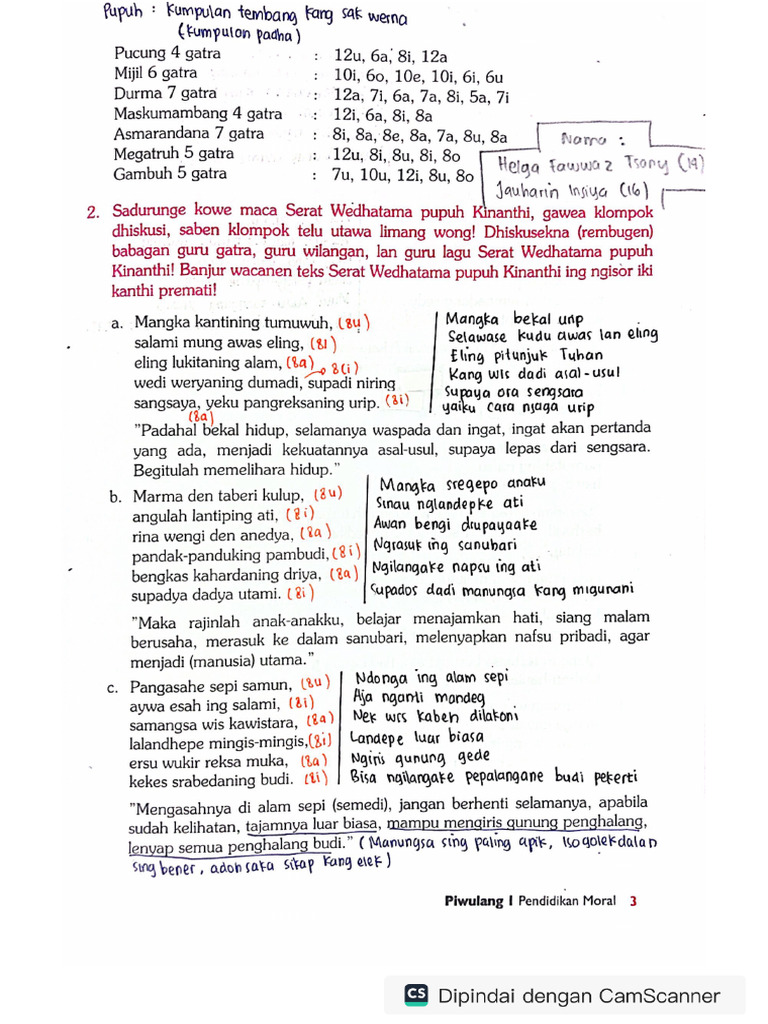 Pupuh : Kumpulan tembang kang sak werna
(Kumpulan padha)
Pucung 4 gatra : 12u, 6a, 8i, 12a
Mijil 6 gatra : 10i, 6o, 10e, 10i, 6i, 6u
Durma 7 gatra : 12a, 7i, 6a, 7a, 8i, 5a, 7i
Maskumambang 4 gatra : 12i, 6a, 8i, 8a
Asmarandana 7 gatra : 8i, 8a, 8e, 8a, 7a, 8u, 8a
Megatruh 5 gatra : 12u, 8i, 8u, 8i, 8o
Gambuh 5 gatra : 7u, 10u, 12i, 8u, 8o
Nama :
Helga Fawwaz Tsany (14)
Jauharin Insiya (16)
2. Sadurunge kowe maca Serat Wedhatama pupuh Kinanthi, gawea klompok
dhiskusi, saben klompok telu utawa limang wong! Dhiskusekna (rembugen)
babagan guru gatra, guru wilangan, lan guru lagu Serat Wedhatama pupuh
Kinanthi! Banjur wacanen teks Serat Wedhatama pupuh Kinanthi ing ngisor iki
kanthi premati!
a. Mangka kantining tumuwuh, (8u)
salami mung awas eling, (8i)
eling lukitaning alam, (8a) 8(i)
wedi weryaning dumadi, supadi niring
sangsaya, yeku pangreksaning urip. (8i)
(8a)
Mangka bekal urip
Selawase kudu awas lan eling
Eling pitunjuk Tuhan
Kang wis dadi asal-usul
Supaya ora sengsara
yaiku cara njaga urip
"Padahal bekal hidup, selamanya waspada dan ingat, ingat akan pertanda
yang ada, menjadi kekuatannya asal-usul, supaya lepas dari sengsara.
Begitulah memelihara hidup."
b. Marma den taberi kulup, (8u)
angulah lantiping ati, (8i)
rina wengi den anedya, (8a)
pandak-panduking pambudi, (8i)
bengkas kahardaning driya, (8a)
supadya dadya utami. (8i)
Mangka sregepo anaku
Sinau nglandepke ati
Awan bengi diupayaake
Ngrasuk ing sanubari
Ngilangake napsu ing ati
Supados dadi manungsa kang migunani
"Maka rajinlah anak-anakku, belajar menajamkan hati, siang malam
berusaha, merasuk ke dalam sanubari, melenyapkan nafsu pribadi, agar
menjadi (manusia) utama."
c. Pangasahe sepi samun, (8u)
aywa esah ing salami, (8i)
samangsa wis kawistara, (8a)
lalandhepe mingis-mingis, (8i)
ersu wukir reksa muka, (8a)
kekes srabedaning budi. (8i)
Ndonga ing alam sepi
Aja nganti mandeg
Nek wis kabeh dilakoni
Landepe luar biasa
Ngiris gunung gede
Bisa ngilangake pepalangane budi pekerti
"Mengasahnya di alam sepi (semedi), jangan berhenti selamanya, apabila
sudah kelihatan, tajamnya luar biasa, mampu mengiris gunung penghalang,
lenyap semua penghalang budi." (Manungsa sing paling apik, Iso golek dalan
sing bener, adoh saka sikap kang elek)
Piwulang I Pendidikan Moral 3
CS Dipindai dengan CamScanner